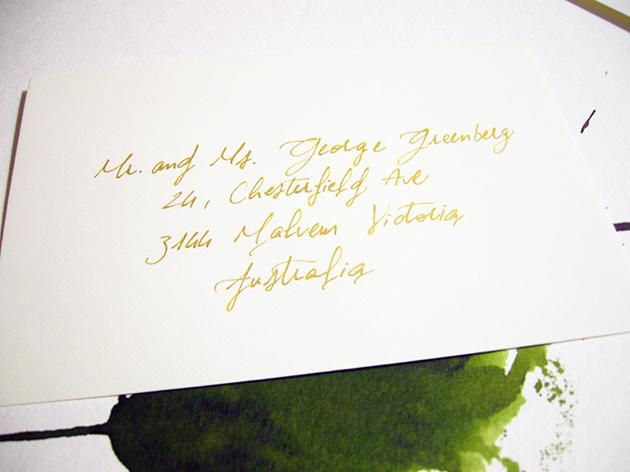 Mr. and Ms. George Greenberg
24, Chesterfield Ave
3144 Malvern Victoria
Australia